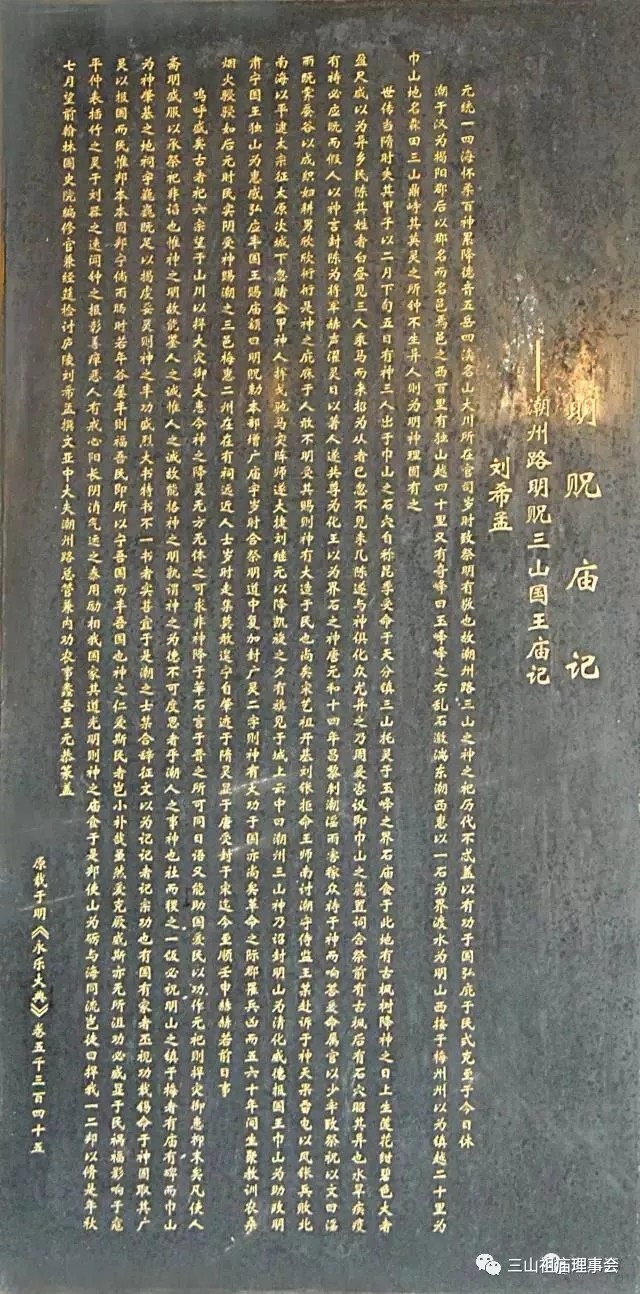 明贶庙记
——潮州路明贶三山国王庙记
刘希孟
元统一四海怀柔百神累降德音五岳四渎名山大川所在官司岁时致祭明有敬也故潮州路三山之神之祀历代不忒盖以有功于国弘庇于民式克至于今日休
潮于汉为揭阳郡后以郡名而名邑焉邑之西百里有独山越四十里又有奇峰曰玉峰峰之右乱石激湍东潮西惠以一石为界渡水为明山西接于梅州州以为镇越二十里为
巾山地名霖田三山鼎峙其英灵之所钟不生异人则为明神理固有之
世传当隋时失其甲子以二月下旬五日有神三人出于巾山之石穴自称昆季受命于天分镇三山托灵于玉峰之界石庙食于此地有古枫树降神之日上生莲花绀碧色大者
盈尺咸以为异乡民陈其姓者白昼见三人乘马而来招为从者已忽不见未几陈遂与神俱化众尤异之乃周爰咨议即巾山之麓置祠合祭前有古枫后有石穴昭其异也水旱疾疫
有祷必应既而假人以神言封陈为将军赫声濯灵日以著人遂共尊为化王以为界石之神唐元和十四年昌黎刺潮淫雨害稼众祷于神而响答爰命属官以少牢致祭祝以文曰淫
雨既霁蚕谷以成织妇耕男欣欣衎衎是神之庇庥于人敢不明受其赐则神有大造于民也尚矣宋艺祖开基刘鋹拒命王师南讨潮守侍监王某赴诉于神天果雷电以风鋹兵败北
南海以平逮太宗征太原次城下忽睹金甲神人挥戈驰马突阵师遂大捷刘继元以降凯旋之夕有旗见于城上云中曰潮州三山神乃诏封明山为清化威德报国王巾山为助政明
肃宁国王独山为惠威弘应丰国王赐庙额曰明贶勅本部增广庙宇岁时合祭明道中复加封广灵二字则神有大功于国亦尚矣革命之际郡罹兵凶而五六十年间生聚教训农桑
烟火骎骎如后元时民实阴受神赐潮之三邑梅惠二州在在有祠远近人士岁时走集莫敢遑宁自肇迹于隋灵显于唐受封于宋迄今至顺壬申赫赫若前日事
呜呼盛矣古者祀六宗望于山川以捍大灾御大患今神之降灵无方无体之可求非神降于莘石言于晋之所可同日语又能助国爱民以功作元祀则捍灾御患抑末矣凡使人
斋明盛服以承祭祀非谄也惟神之明故能鉴人之诚惟人之诚故能格神之明孰谓神之为德不可度思者乎潮人之事神也社而稷之一饭必祝明山之镇于梅者有庙有碑而巾山
为神肇基之地祠宇巍巍既足以揭虔妥灵则神之丰功盛烈大书特书不一书者实甚宜于是潮之士某合辞征文以为记记者记宗功也有国有家者丕视功载锡命于神固取其广
灵以报国而民惟邦本本固邦宁倘雨旸时若年谷屡丰则福吾民即所以宁吾国而丰吾国也神之仁爱斯民者岂小补哉虽然爱克厥威斯亦无所沮功必威显于民祸福影响于寇
平仲表插竹之灵于刘器之速闻钟之报彰善瘅恶人有戒心阳长阴消气运之泰用励相我国家其道光明则神之庙食于是邦使山为砺与海同流岂徒曰捍我一二邦以脩是年秋
七月望前翰林国史院编修官兼经筵检讨庐陵刘希孟撰文亚中大夫潮州路总管兼内劝农事蠡吾王元恭篆盖
原载于明《永乐大典》卷五千三百四十五
三山祖庙理事会